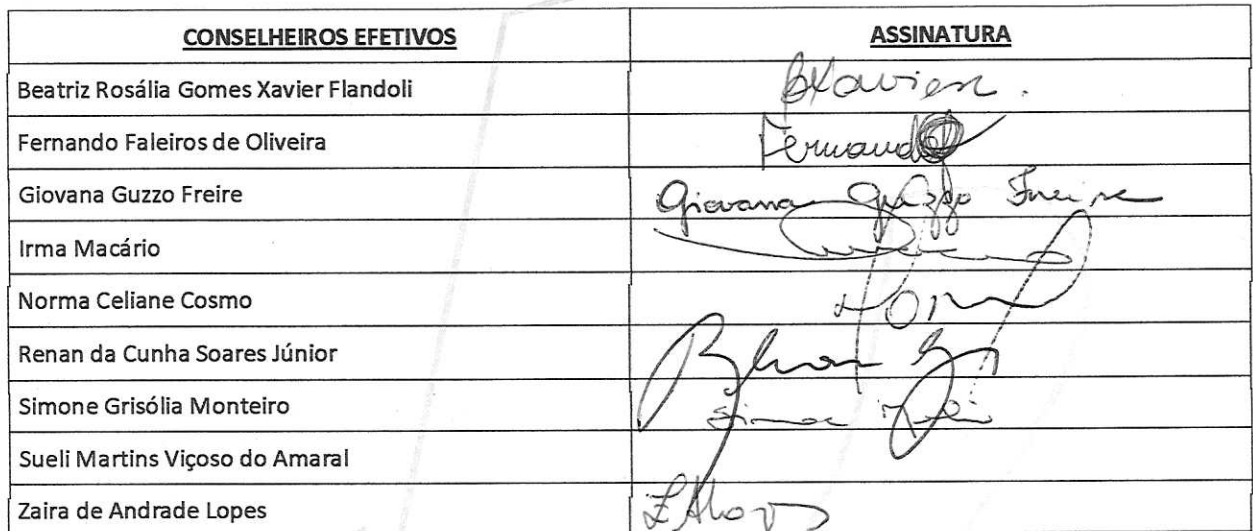 CONSELHEIROS EFETIVOS ASSINATURA
Beatriz Rosália Gomes Xavier Flandoli BXavier.
Fernando Faleiros de Oliveira Fernando
Giovana Guzzo Freire Giovana Guzzo Freire
Irma Macário
Norma Celiane Cosmo
Renan da Cunha Soares Júnior
Simone Grisólia Monteiro Simone
Sueli Martins Viçoso do Amaral
Zaira de Andrade Lopes